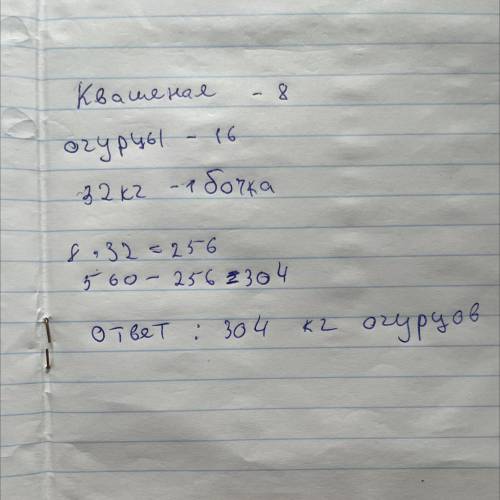 Квашеная - 8
огурцы - 16
32 кг - 1 бочка
8 . 32 = 256
560 - 256 = 304
ответ : 304 кг огурцов